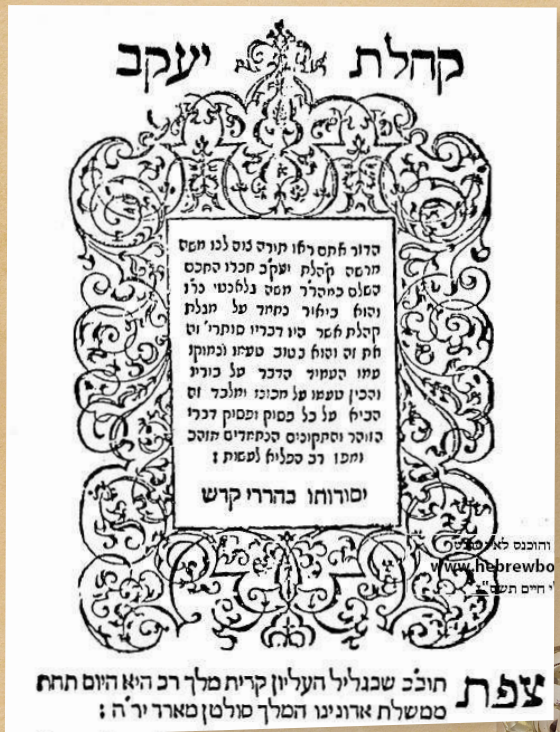 קהלת יעקב
הדור אתם ראו תורה צוה לנו משה
מרשה קהלת יעקב חברו החכם
השלם כמהר״ר משה גלאנטי נר״ו
והוא ביאור נחמד על מגלת
קהלת אשר היו דבריו סותרי׳ זה
את זה והוא בטוב טעמו ונמוקו
עמו העמיד הדבר על בוריו
והכין טעמו על מכונו ומלבד זה
הביא על כל פסוק ופסוק דברי
הזוהר והתקונים הנחמדים מזהב
ומפז רב הפליא לעשות :
יסודותו בהררי קדש
והוכנס לאינטרנט
www.hebrewbo
חיים תשס״ו
צפת תוב״ב שבגליל העליון קרית מלך רב היא היום תחת
ממשלת אדונינו המלך סולטן מארד יר״ה :